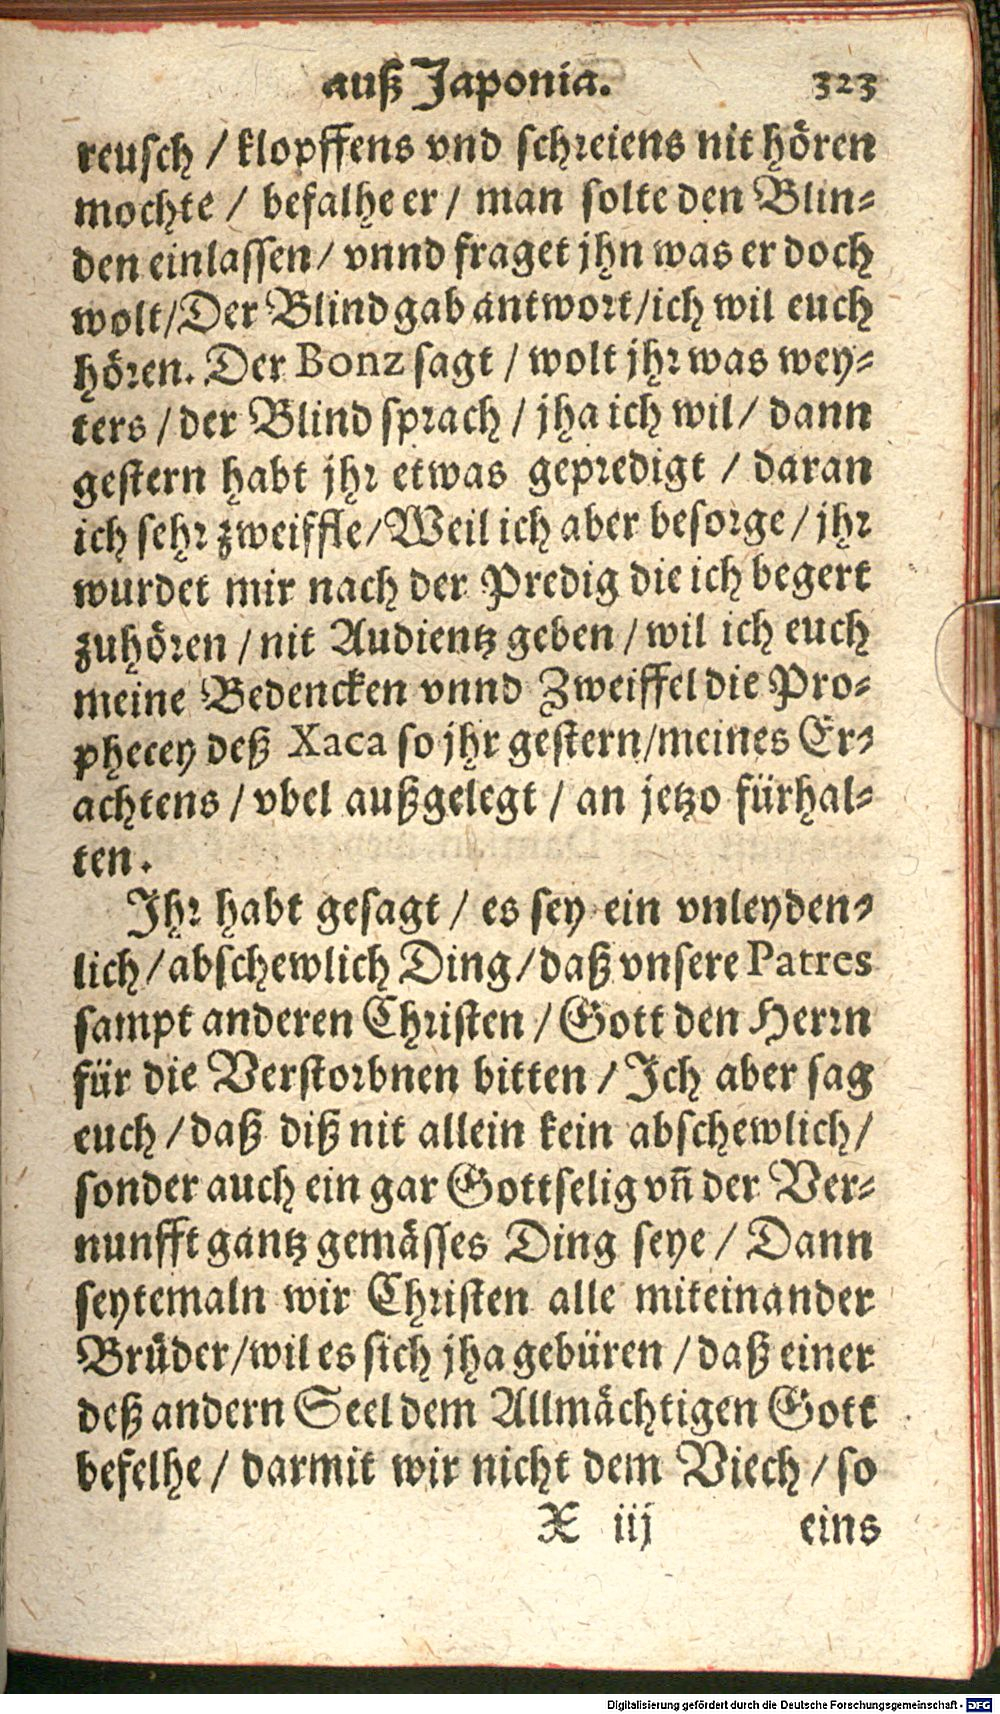 auß Japonia. 323
reusch / klopffens vnd schreiens nit hören
mochte / befalhe er / man solte den Blin-
den einlassen / vnnd fraget jhn was er doch
wolt / Der Blind gab antwort / ich wil euch
hören. Der Bonz sagt / wolt jhr was wey-
ters / der Blind sprach / jha ich wil / dann
gestern habt jhr etwas gepredigt / daran
ich sehr zweiffle / Weil ich aber besorge / jhr
wurdet mir nach der Predig die ich begert
zuhören / nit Audientz geben / wil ich euch
meine Bedencken vnnd Zweiffel die Pro-
phecey deß Xaca so jhr gestern / meines Er-
achtens / vbel außgelegt / an jetzo fürhal-
ten.
Ihr habt gesagt / es sey ein vnleyden-
lich / abschewlich Ding / daß vnsere Patres
sampt anderen Christen / Gott den Herrn
für die Verstorbnen bitten / Ich aber sag
euch / daß diß nit allein kein abschewlich /
sonder auch ein gar Gottselig vñ der Ver-
nunfft gantz gemässes Ding seye / Dann
seytemaln wir Christen alle miteinander
Brüder / wil es sich jha gebüren / daß einer
deß andern Seel dem Allmächtigen Gott
befelhe / darmit wir nicht dem Viech / so
X iij eins
Digitalisierung gefördert durch die Deutsche Forschungsgemeinschaft - DFG